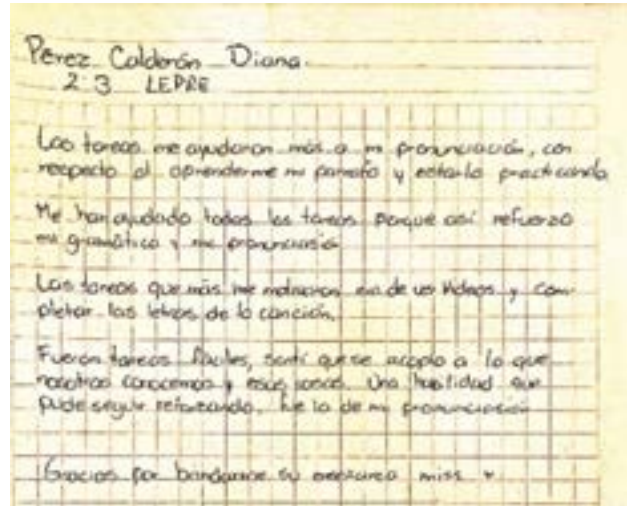 Pérez Calderón Diana.
2.3 LEPRE
Las tareas me ayudaron más a mi pronunciación, con
respecto al aprenderme mi párrafo y estarlo practicando
Me han ayudado todas las tareas porque así refuerzo
mi gramática y mi pronunciasió
Las tareas que más me motivaron era de ver videos y com-
pletar las letras de la canción.
Fueron tareas fáciles, sentí que se acoplo a lo que
nosotros conocemos y esas Una habilidad que
pude seguir reforzando, fue la de mi pronunciasió
Gracias por brindarme su miss